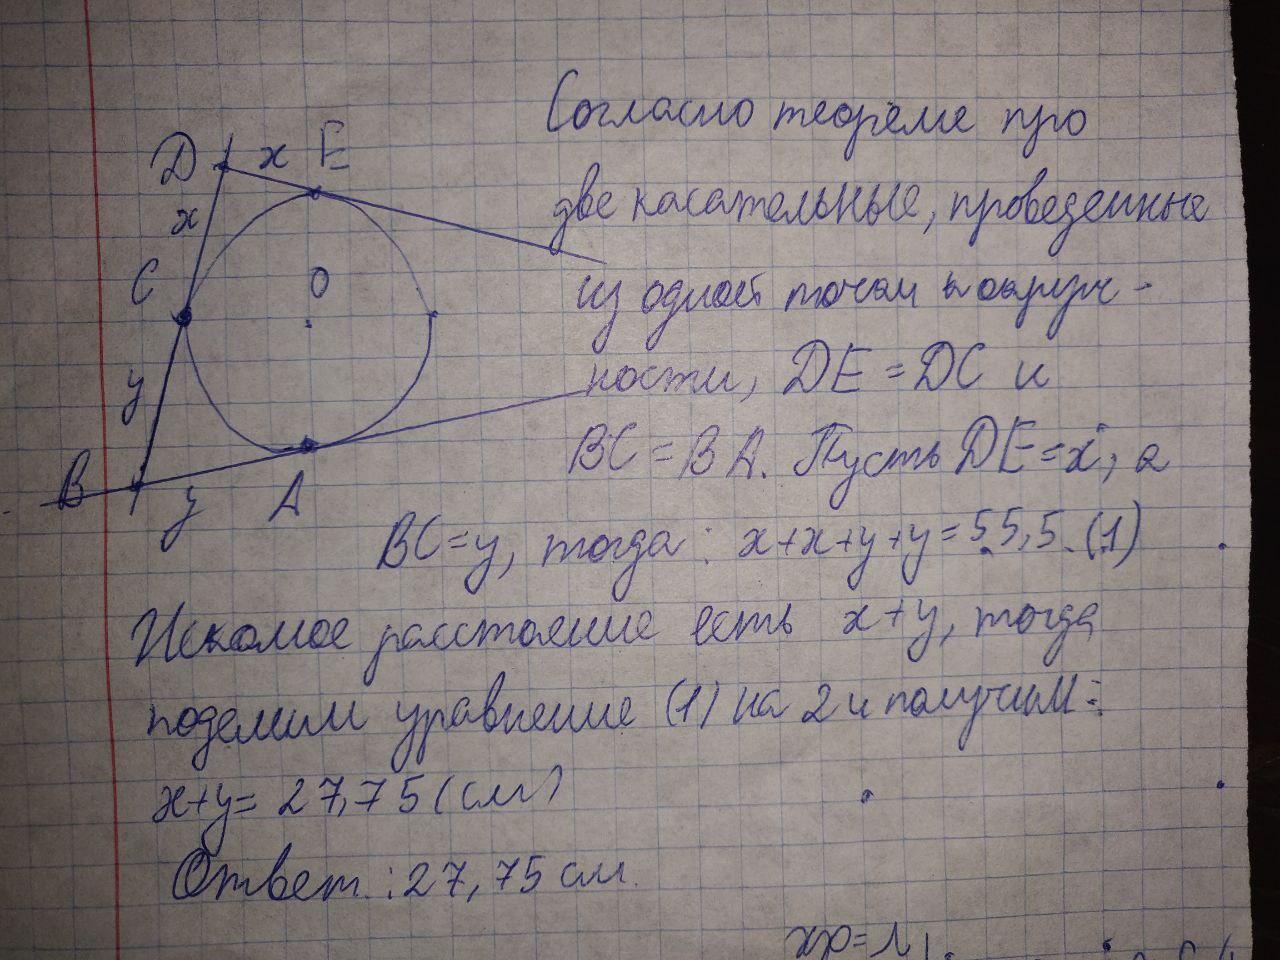 Согласно теореме про
D x E
две касательные, проведенные
x
C O
из одной точки к окруж-
ности, DE = DC и
y
BC = BA. Пусть DE = x, а
B y A
BC = y, тогда: x+x+y+y = 55,5 (1)
Искомое расстояние есть x+y, тогда
поделим уравнение (1) на 2 и получим:
x+y = 27,75 (см)
Ответ: 27,75 см.